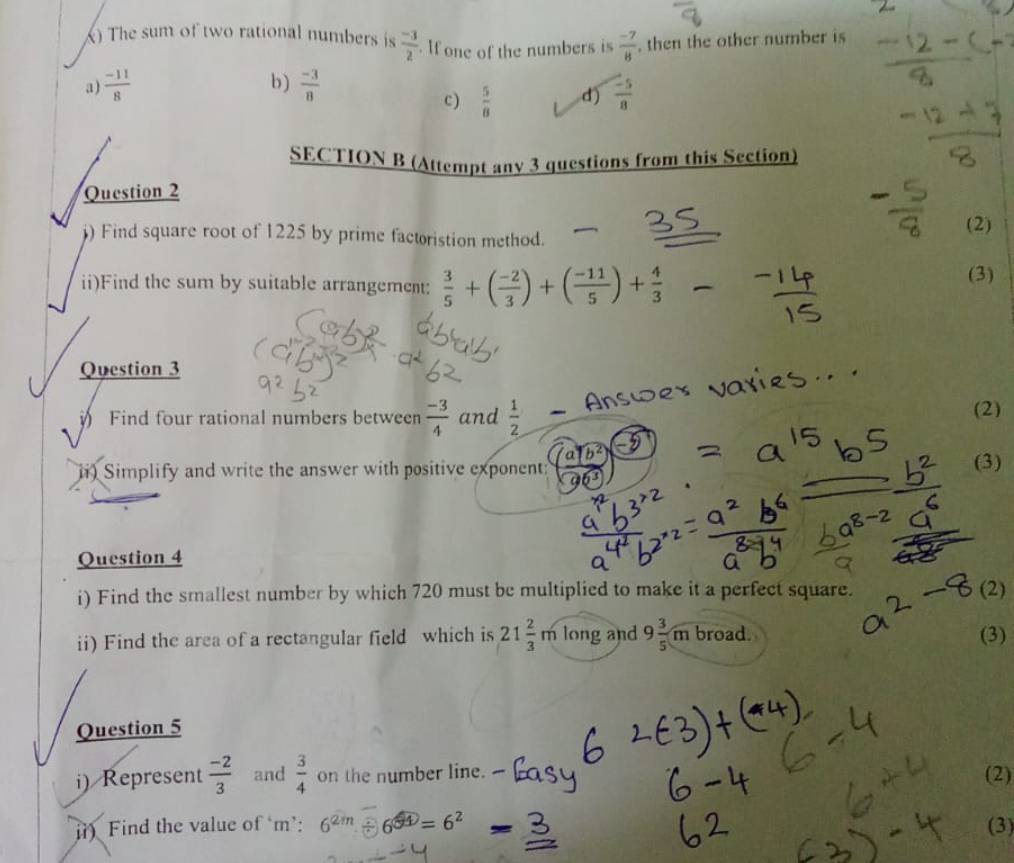 x) The sum of two rational numbers is -3/2. If one of the numbers is -7/8, then the other number is
a) -11/8 b) -3/8 c) 5/8 d) -5/8
-12 + 7 / 8
-5/8
SECTION B (Attempt any 3 questions from this Section)
Question 2
i) Find square root of 1225 by prime factoristion method. - 35 (2)
ii)Find the sum by suitable arrangement: 3/5 + (-2/3) + (-11/5) + 4/3 - -14/15 (3)
a² b²
a² b²
Question 3
i) Find four rational numbers between -3/4 and 1/2 - Answer varies... (2)
ii) Simplify and write the answer with positive exponent: = a¹⁵ b⁵ (3)
b²/a⁶
Question 4
i) Find the smallest number by which 720 must be multiplied to make it a perfect square. (2)
a² - 8
ii) Find the area of a rectangular field which is 21 2/3 m long and 9 3/5 m broad. (3)
Question 5
6 2(-3)+(-4)
6 - 4
i) Represent -2/3 and 3/4 on the number line. - Easy (2)
6 - 4
6 + 4
ii) Find the value of 'm': 6²ᵐ ÷ 6 = 6² - 3 (3)
62